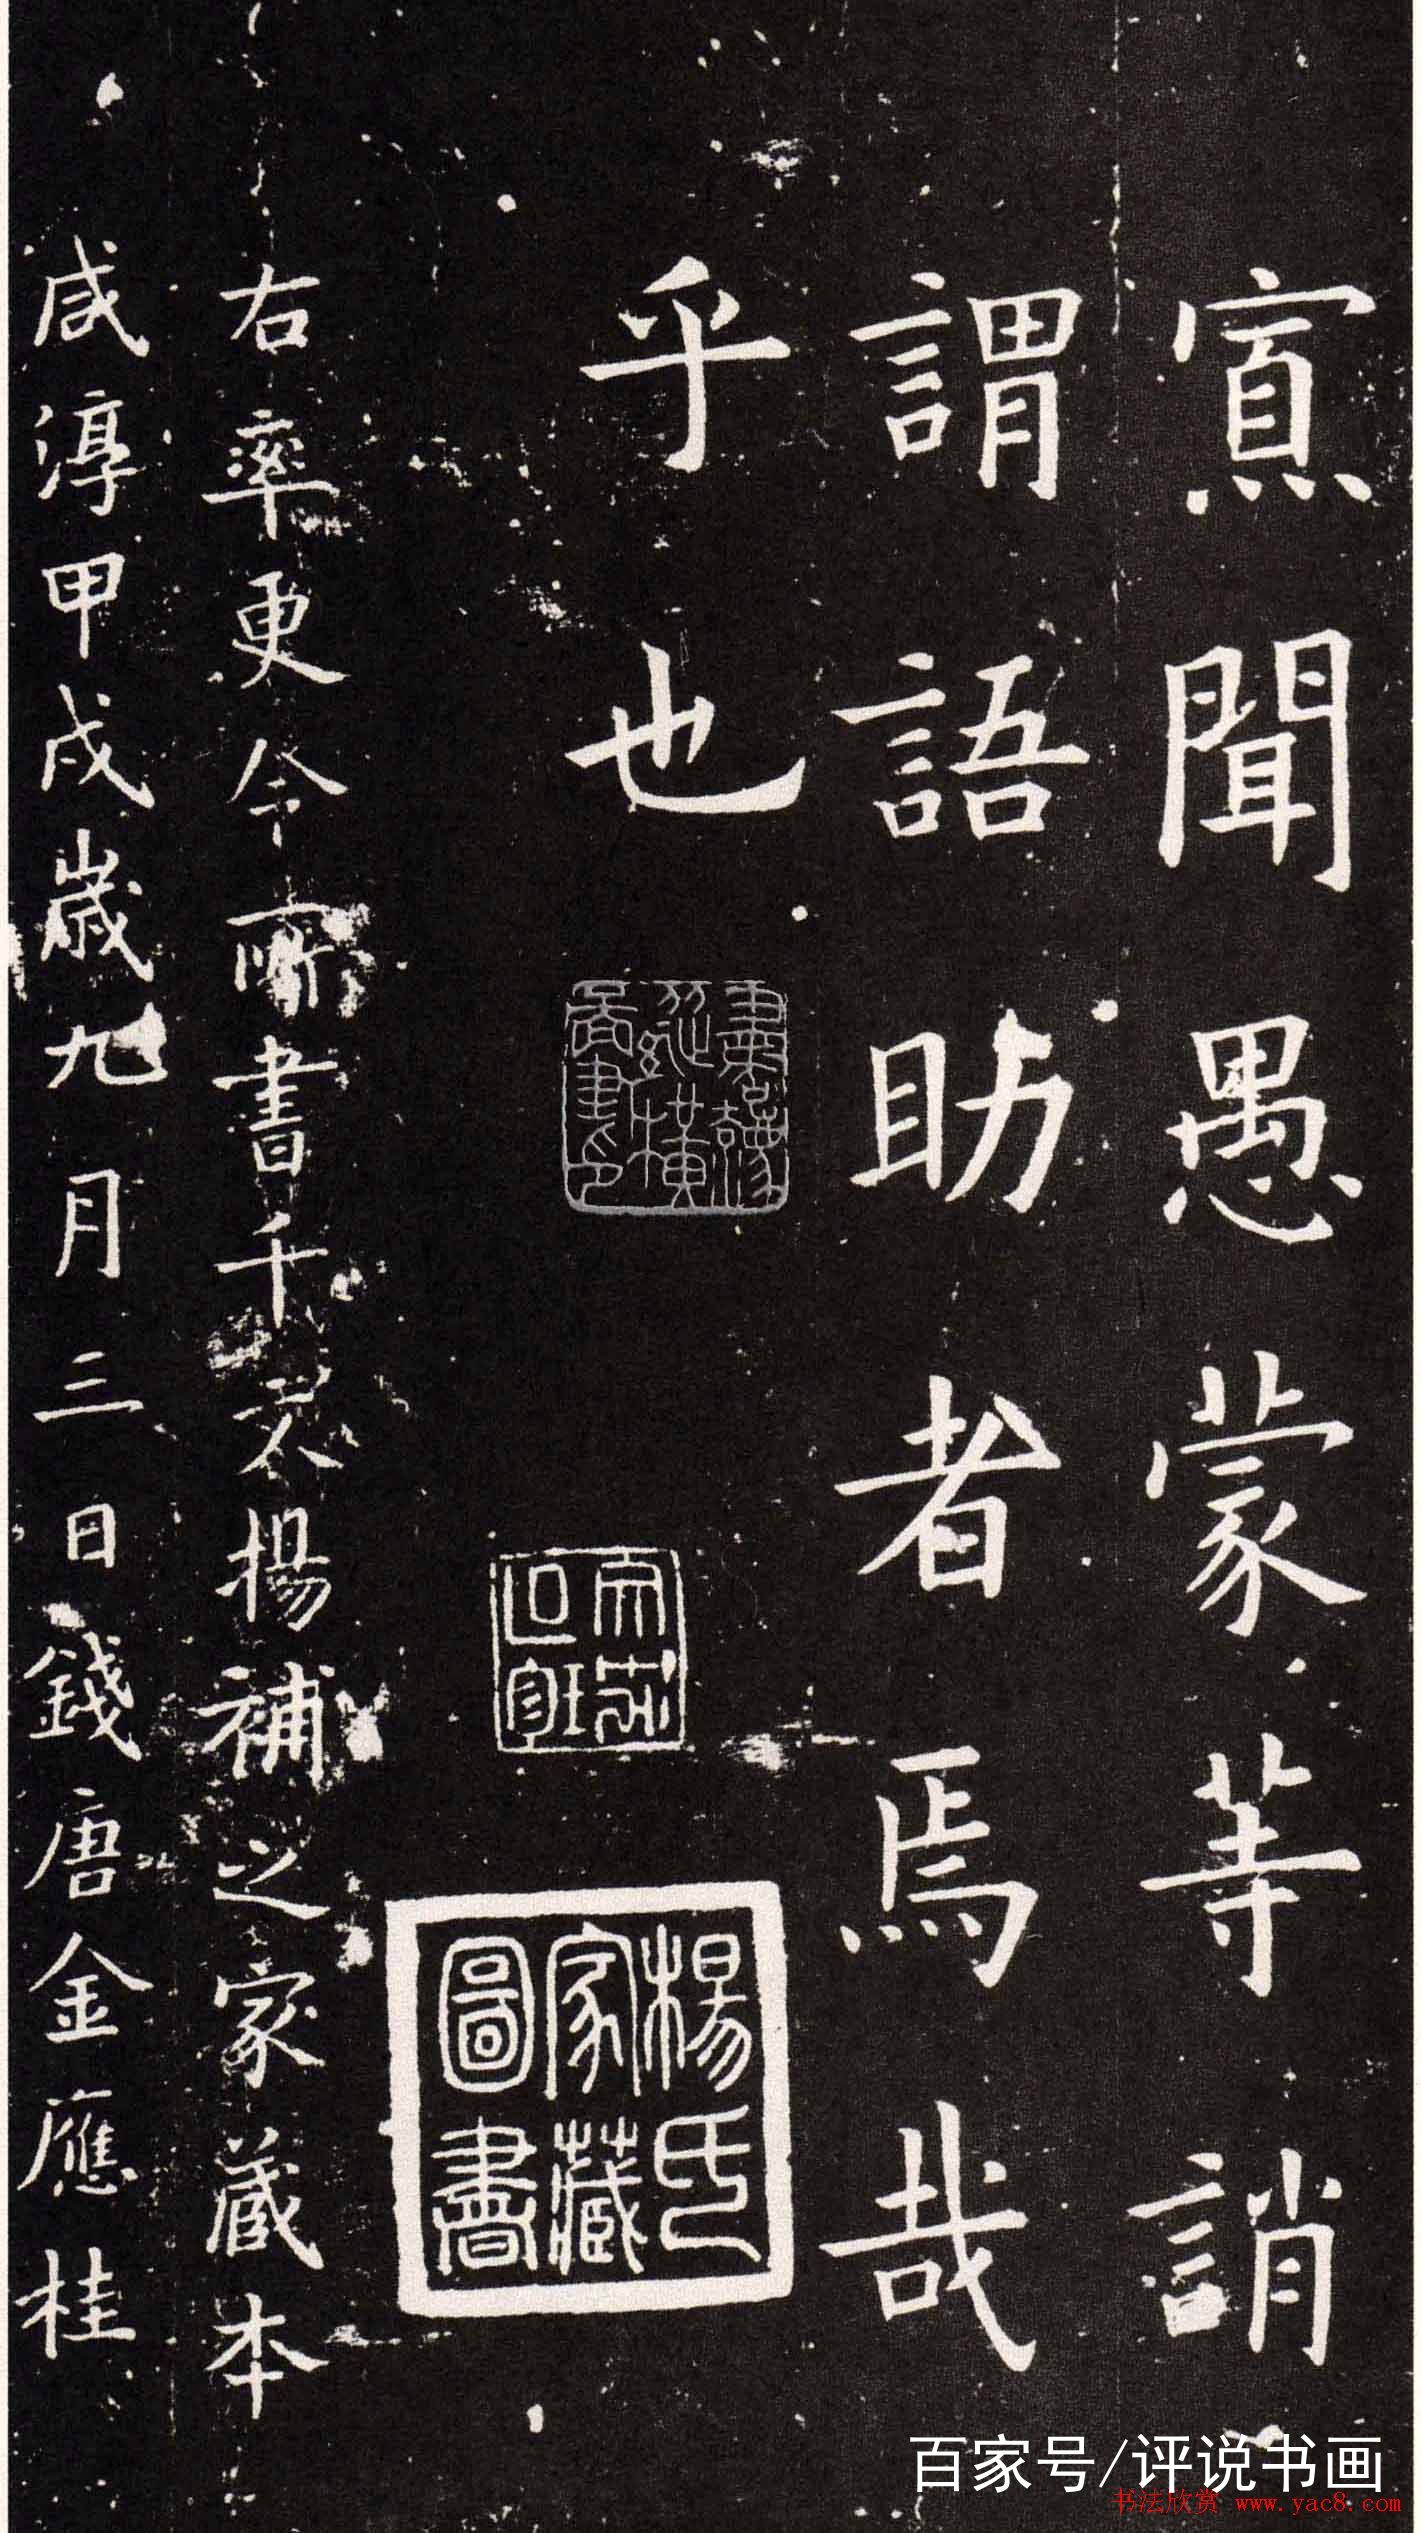 寡聞愚蒙等誚
謂語助者焉哉
乎也
楊氏
家藏
圖書
右率更令所書千文楊補之家藏本
咸淳甲戌歲九月三日錢唐金應桂
百家号/评说书画
书法欣赏 www.yac8.com